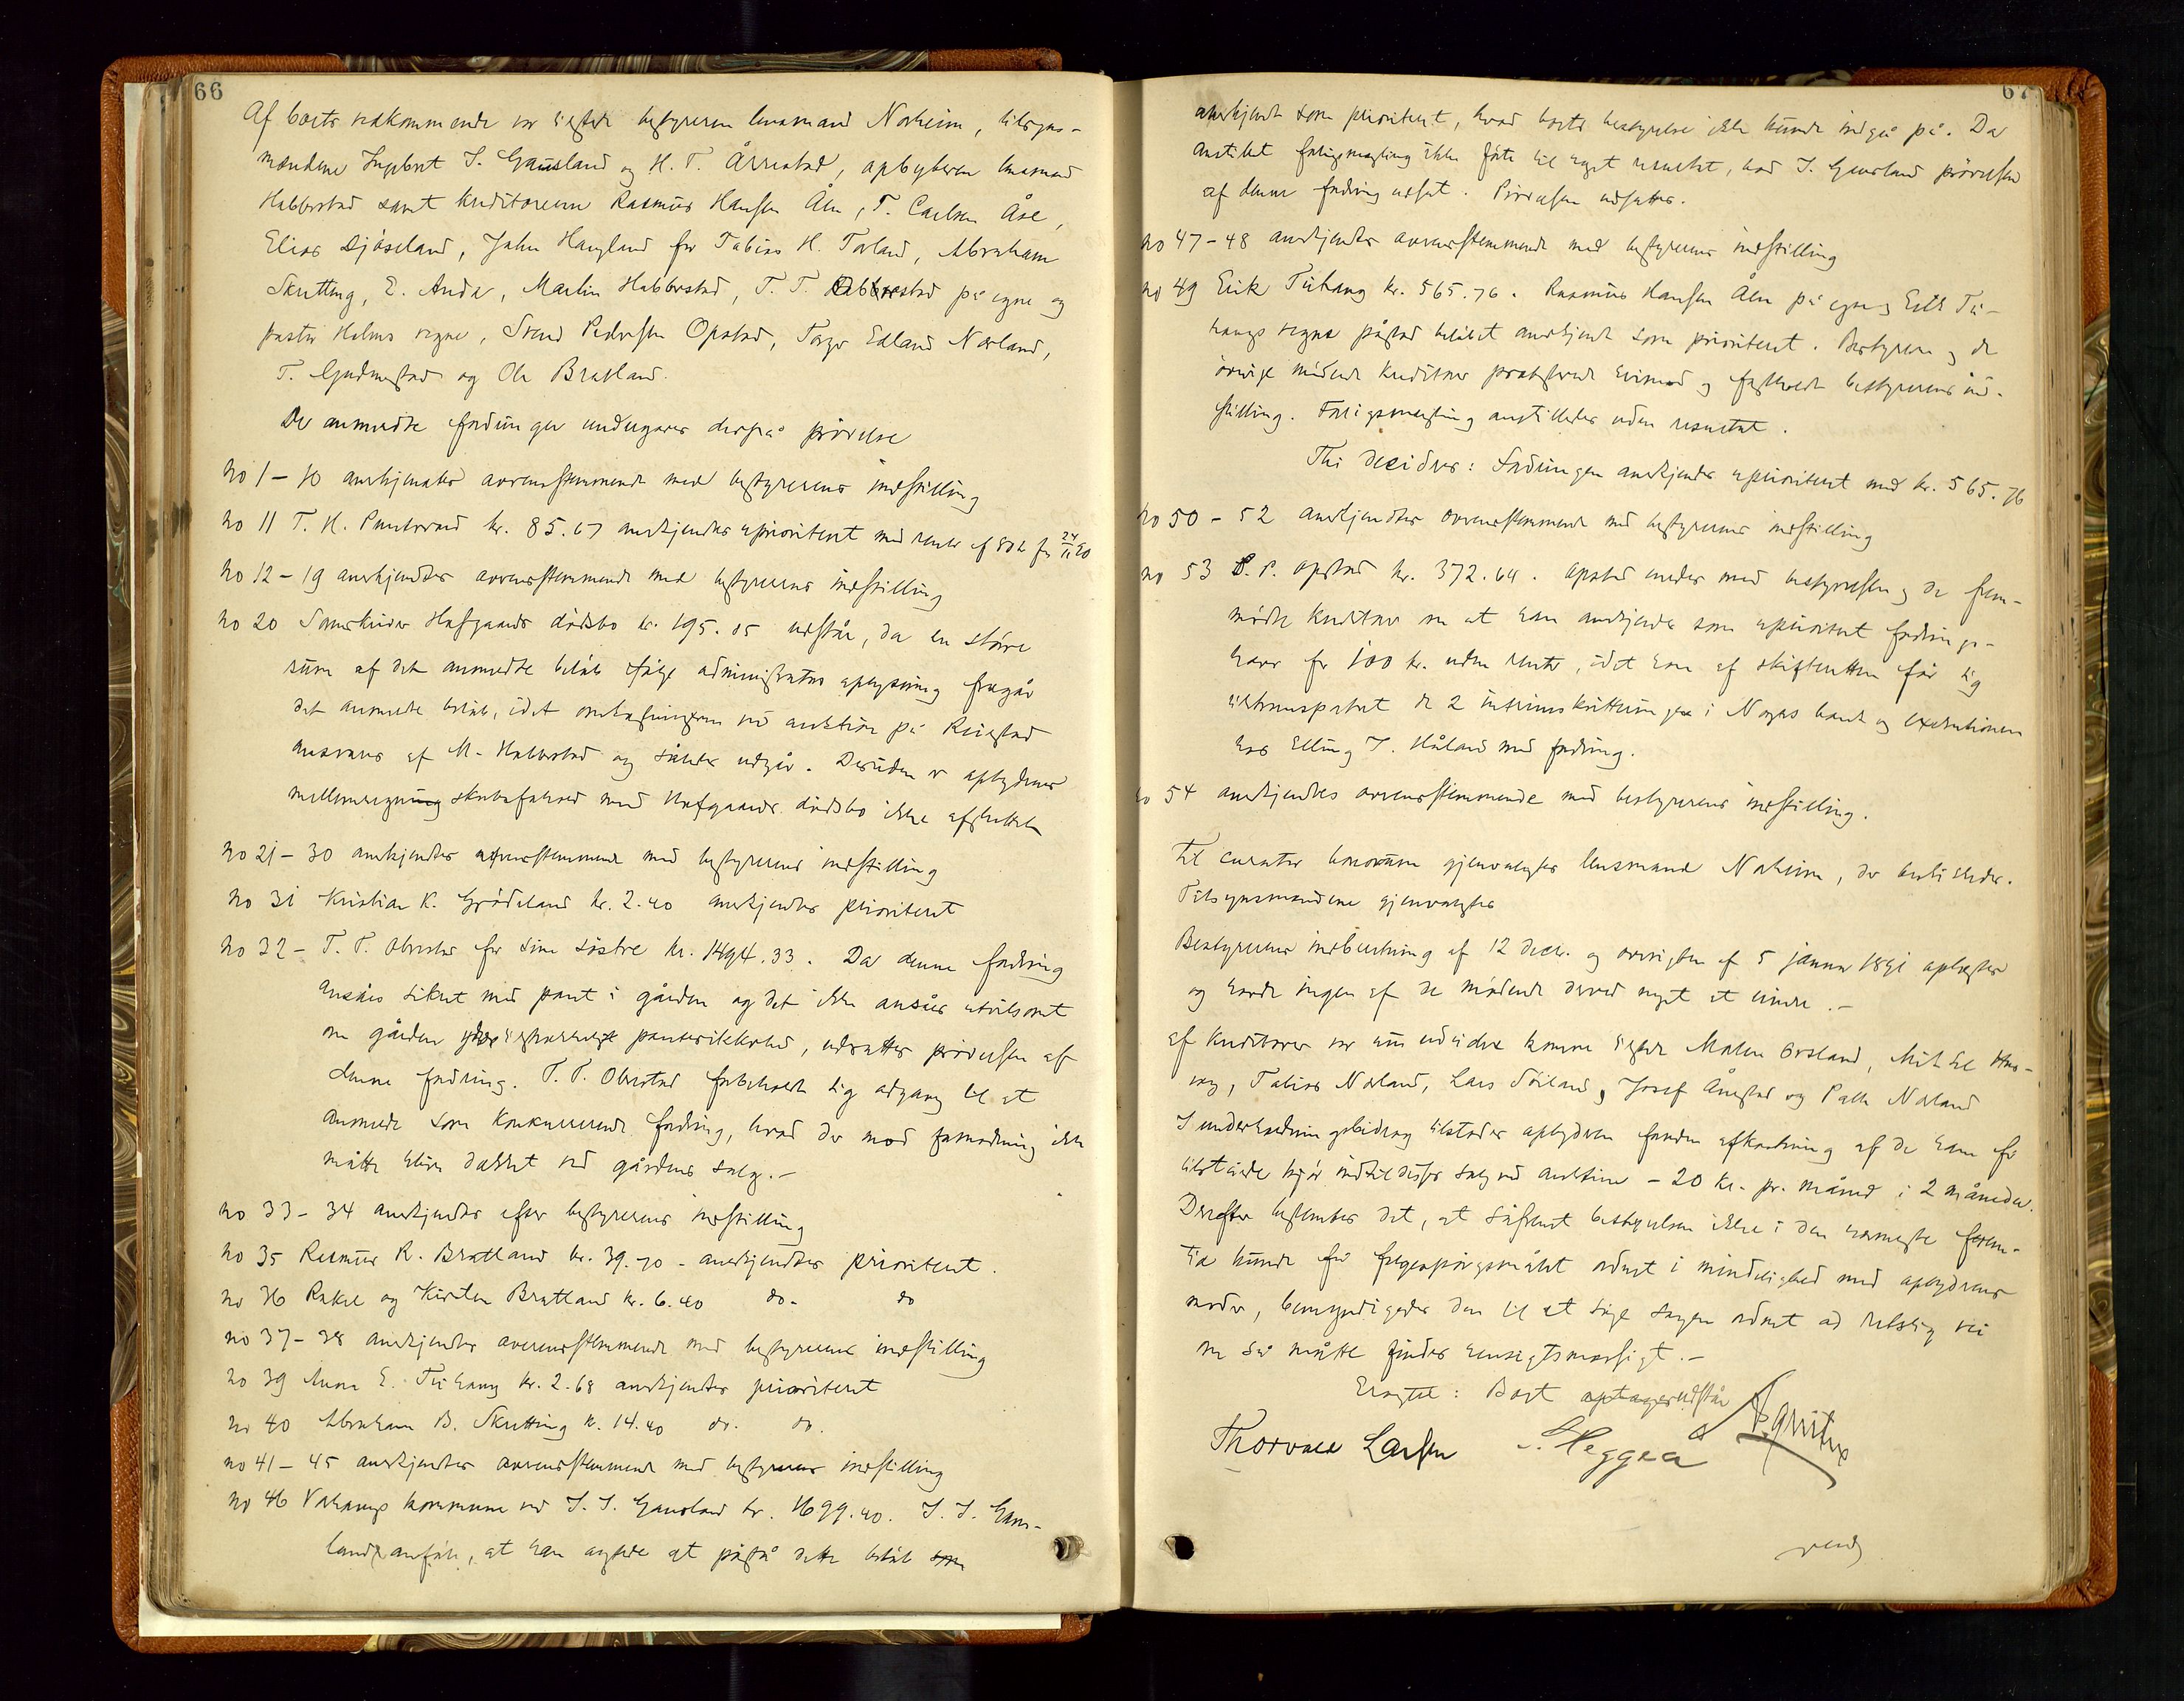 66
Af boets vedkommende var tilstede bestyreren lensmand Norheim, tilsyns-
mændene Ingebret I. Gausland og H. T. Årrestad, opbyderen lensmand
Habberstad samt kreditorerne Rasmus Hansen Ålen, T. Carlsen Åse,
Elias Djøseland, John Haugland for Tobias H. Torland, Abraham
Skretting, E. Anda, Martin Habberstad, T. T. Obrestad på egne og
pastor Holms vegne, Svend Pedersen Opstad, Torger Edland Norland,
T. Gudmestad og Ole Bratland.
De anmeldte fordringer undergaves derpå prøvelse
No 1 – 10 anerkjendtes overensstemmende med bestyrerens indstilling
No 11 T. H. kr. 85.67 anerkjendtes uprioritert med renter af 80 kr fra 24/11 90
No 12 – 19 anerkjendtes overensstemmende med bestyrerens indstilling
No 20 Sorenskriver Hofgaards dødsbo kr. 195.05 udstår, da en større
sum af det anmeldte beløb ifølge administrators oplysning fragår
det anmeldte beløb, idet omkostningerne ved auktion på
ansvares af M. Habberstad og således udgår. Desuden er opbyderens
mellemregning med Hofgaards dødsbo ikke afsluttet
No 21 – 30 anerkjendtes overensstemmende med bestyrerens indstilling
No 31 Kristian K. Grødeland kr. 2.40 anerkjendtes prioritert
No 32 – T. T. Obrestad for sine søstre kr. 1494.33. Da denne fordring
ansåes sikret med pant i gården og det ikke ansåes utvilsomt
om gården yder pantesikkerhed, udsattes prøvelsen af
denne fordring. T. T. Obrestad forbeholdt sig adgang til at
anmelde som konkurrerende fordring, hvad der mod formodning ikke
måtte blive dækket ved gårdens salg. –
No 33 – 34 anerkjendtes efter bestyrerens indstilling
No 35 Rasmus R. Bratland kr. 39.70 – anerkjendtes prioritert.
No 36 Rakel og Kirsten Bratland kr. 6.40 do. do
No 37 – 38 anerkjendtes overensstemmende med bestyrerens indstilling
No 39 Anna E. Tuhaug kr. 2.68 anerkjendtes prioritert
No 40 Abraham B. Skretting kr. 14.40 do. do.
No 41 – 45 anerkjendtes overensstemmende med bestyrerens indstilling
No 46 Varhaugs kommune ved I. I. Gausland kr. 1699.40. I. I. Gaus-
land anførte, at han agtede at påstå dette beløb som
67
anerkjendt som prioritert, hvad boets bestyrelse ikke kunde indgå på. Da
anstillet forligsmegling ikke førte til noget resultat, bad I. Gausland prøvelsen
af denne fordring udsat. Prøvelsen udsattes.
No 47 – 48 anerkjendtes overensstemmende med bestyrerens indstilling
No 49 Eirik Tuhaug kr. 565.76. Rasmus Hansen Ålen på egne og Eirik Tu-
haugs vegne påstod beløbet anerkjendt som prioritert. Bestyreren og de
øvrige mødende kreditorer protesterede herimod og fastholdt bestyrerens ind-
stilling. Forligsmegling anstilledes uden resultat.
Thi decideres: Fordringen anerkjendes uprioritert med kr. 565.76
No 50 – 52 anerkjendtes overensstemmende med bestyrerens indstilling
No 53 S. P. Opstad kr. 372.64. Opstad enedes med bestyrelsen og de frem-
mødte kreditorer om at han anerkjendes som uprioritert fordrings-
haver for 100 kr. uden renter, idet han af skifteretten får sig
de 2 interimskvitteringer i Norges bank og exekutionen
hos Elling I. Håland med fordring.
No 54 anerkjendtes overensstemmende med bestyrerens indstilling.
Til curator bonorum gjenvalgtes lensmand Norheim, der
Tilsynsmændene gjenvalgtes
Bestyrerens indberetning af 12 decbr. og oversigten af 5 januar 1891 oplæstes
og havde ingen af de mødende derved noget at erindre. –
Af kreditorer var nu endvidere komne tilstede Malena Orsland,
Tobias Norland, Lars Søiland, Josef Årrestad og Palle Norland
I underholdningsbidrag tilstodes opbyderen foruden afkastning af de ham
tilståede kjør indtil disses salg ved auktion – 20 kr. pr. måned i 2 måneder.
Derefter bestemtes det, at såfremt bestyrelsen ikke i den nærmeste frem-
tid kunde få ordnet i mindelighed med opbyderens
moder, bemyndigedes den til at søge sagen ordnet ad retslig vei
om så måtte findes hensigtsmæssigt. –
Eragtet: Boet udstår
Thorvald Larsen S. Heggeå
vend